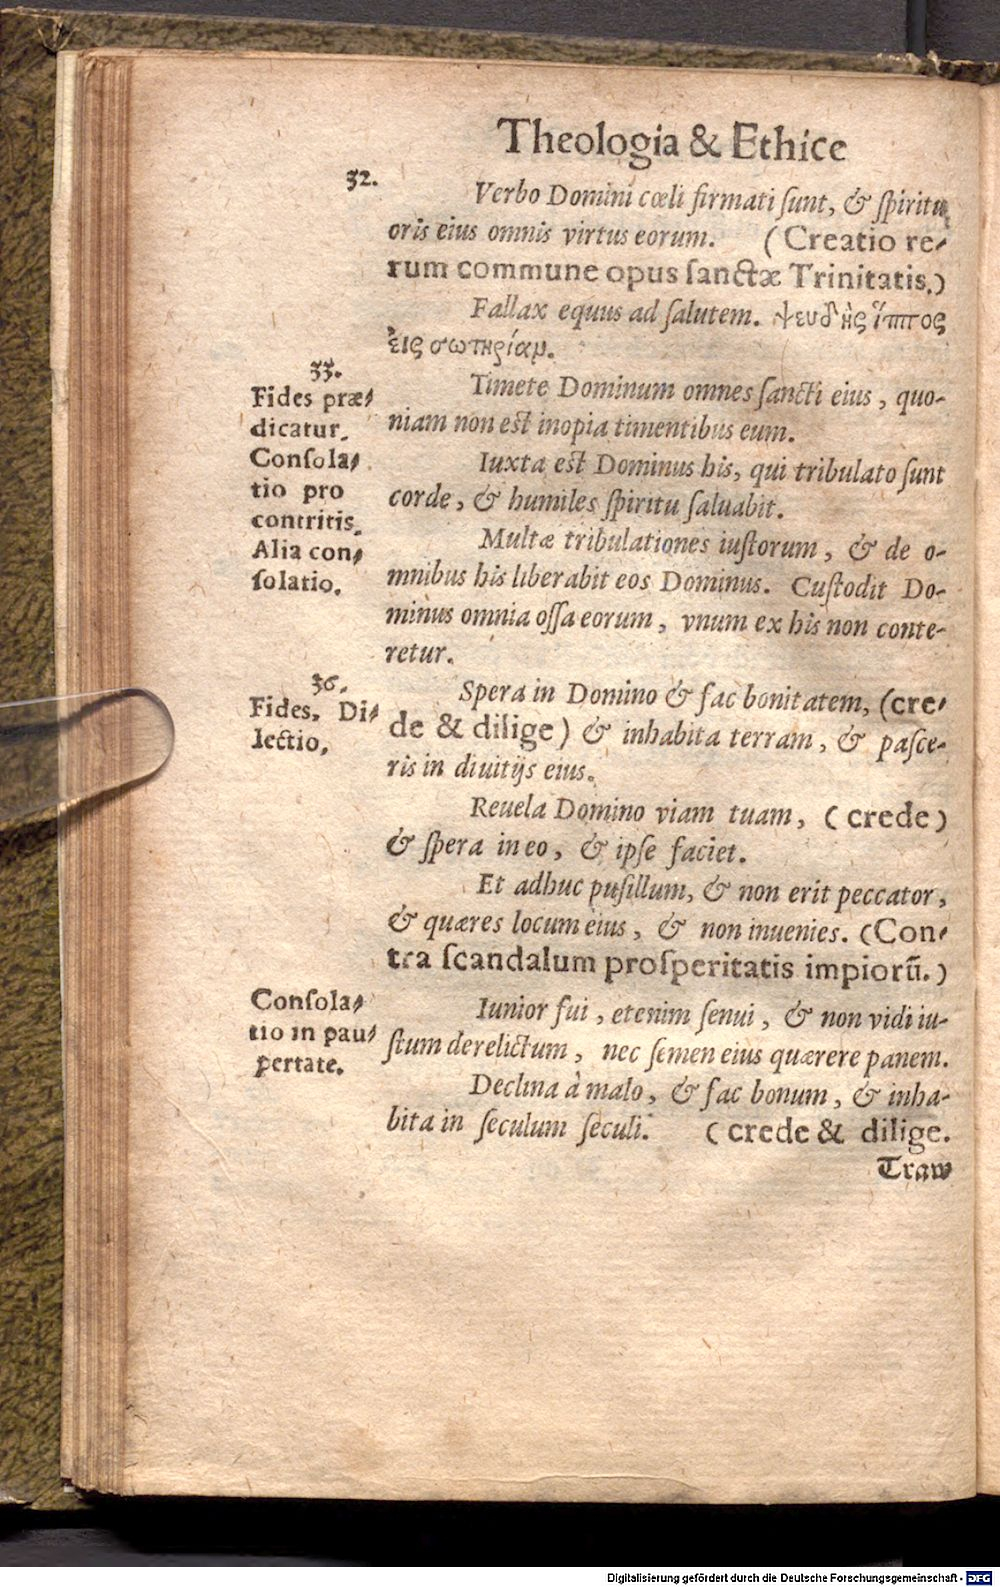 Theologia & Ethice
32.
Verbo Domini cœli firmati ſunt, & ſpiritu
oris eius omnis virtus eorum. (Creatio re-
rum commune opus ſanctæ Trinitatis.)
Fallax equus ad ſalutem. ψευδὴς ἵππος
εἰς σωτηρίαν.
33.
Fides præ-
dicatur.
Timete Dominum omnes ſancti eius, quo-
niam non est inopia timentibus eum.
Conſola-
tio pro
contritis.
Iuxta est Dominus his, qui tribulato ſunt
corde, & humiles ſpiritu ſaluabit.
Alia con-
ſolatio.
Multæ tribulationes iuſtorum, & de o-
mnibus his liberabit eos Dominus. Cuſtodit Do-
minus omnia oſſa eorum, vnum ex his non conte-
retur.
36.
Fides. Di-
lectio.
Spera in Domino & fac bonitatem, (cre-
de & dilige) & inhabita terram, & paſce-
ris in diuitijs eius.
Reuela Domino viam tuam, (crede)
& ſpera in eo, & ipſe faciet.
Et adhuc puſillum, & non erit peccator,
& quæres locum eius, & non inuenies. (Con-
tra ſcandalum proſperitatis impiorũ.)
Conſola-
tio in pau-
pertate.
Iunior fui, etenim ſenui, & non vidi iu-
ſtum derelictum, nec ſemen eius quærere panem.
Declina à malo, & fac bonum, & inha-
bita in ſeculum ſeculi. (crede & dilige.
Traw
Digitalisierung gefördert durch die Deutsche Forschungsgemeinschaft - DFG